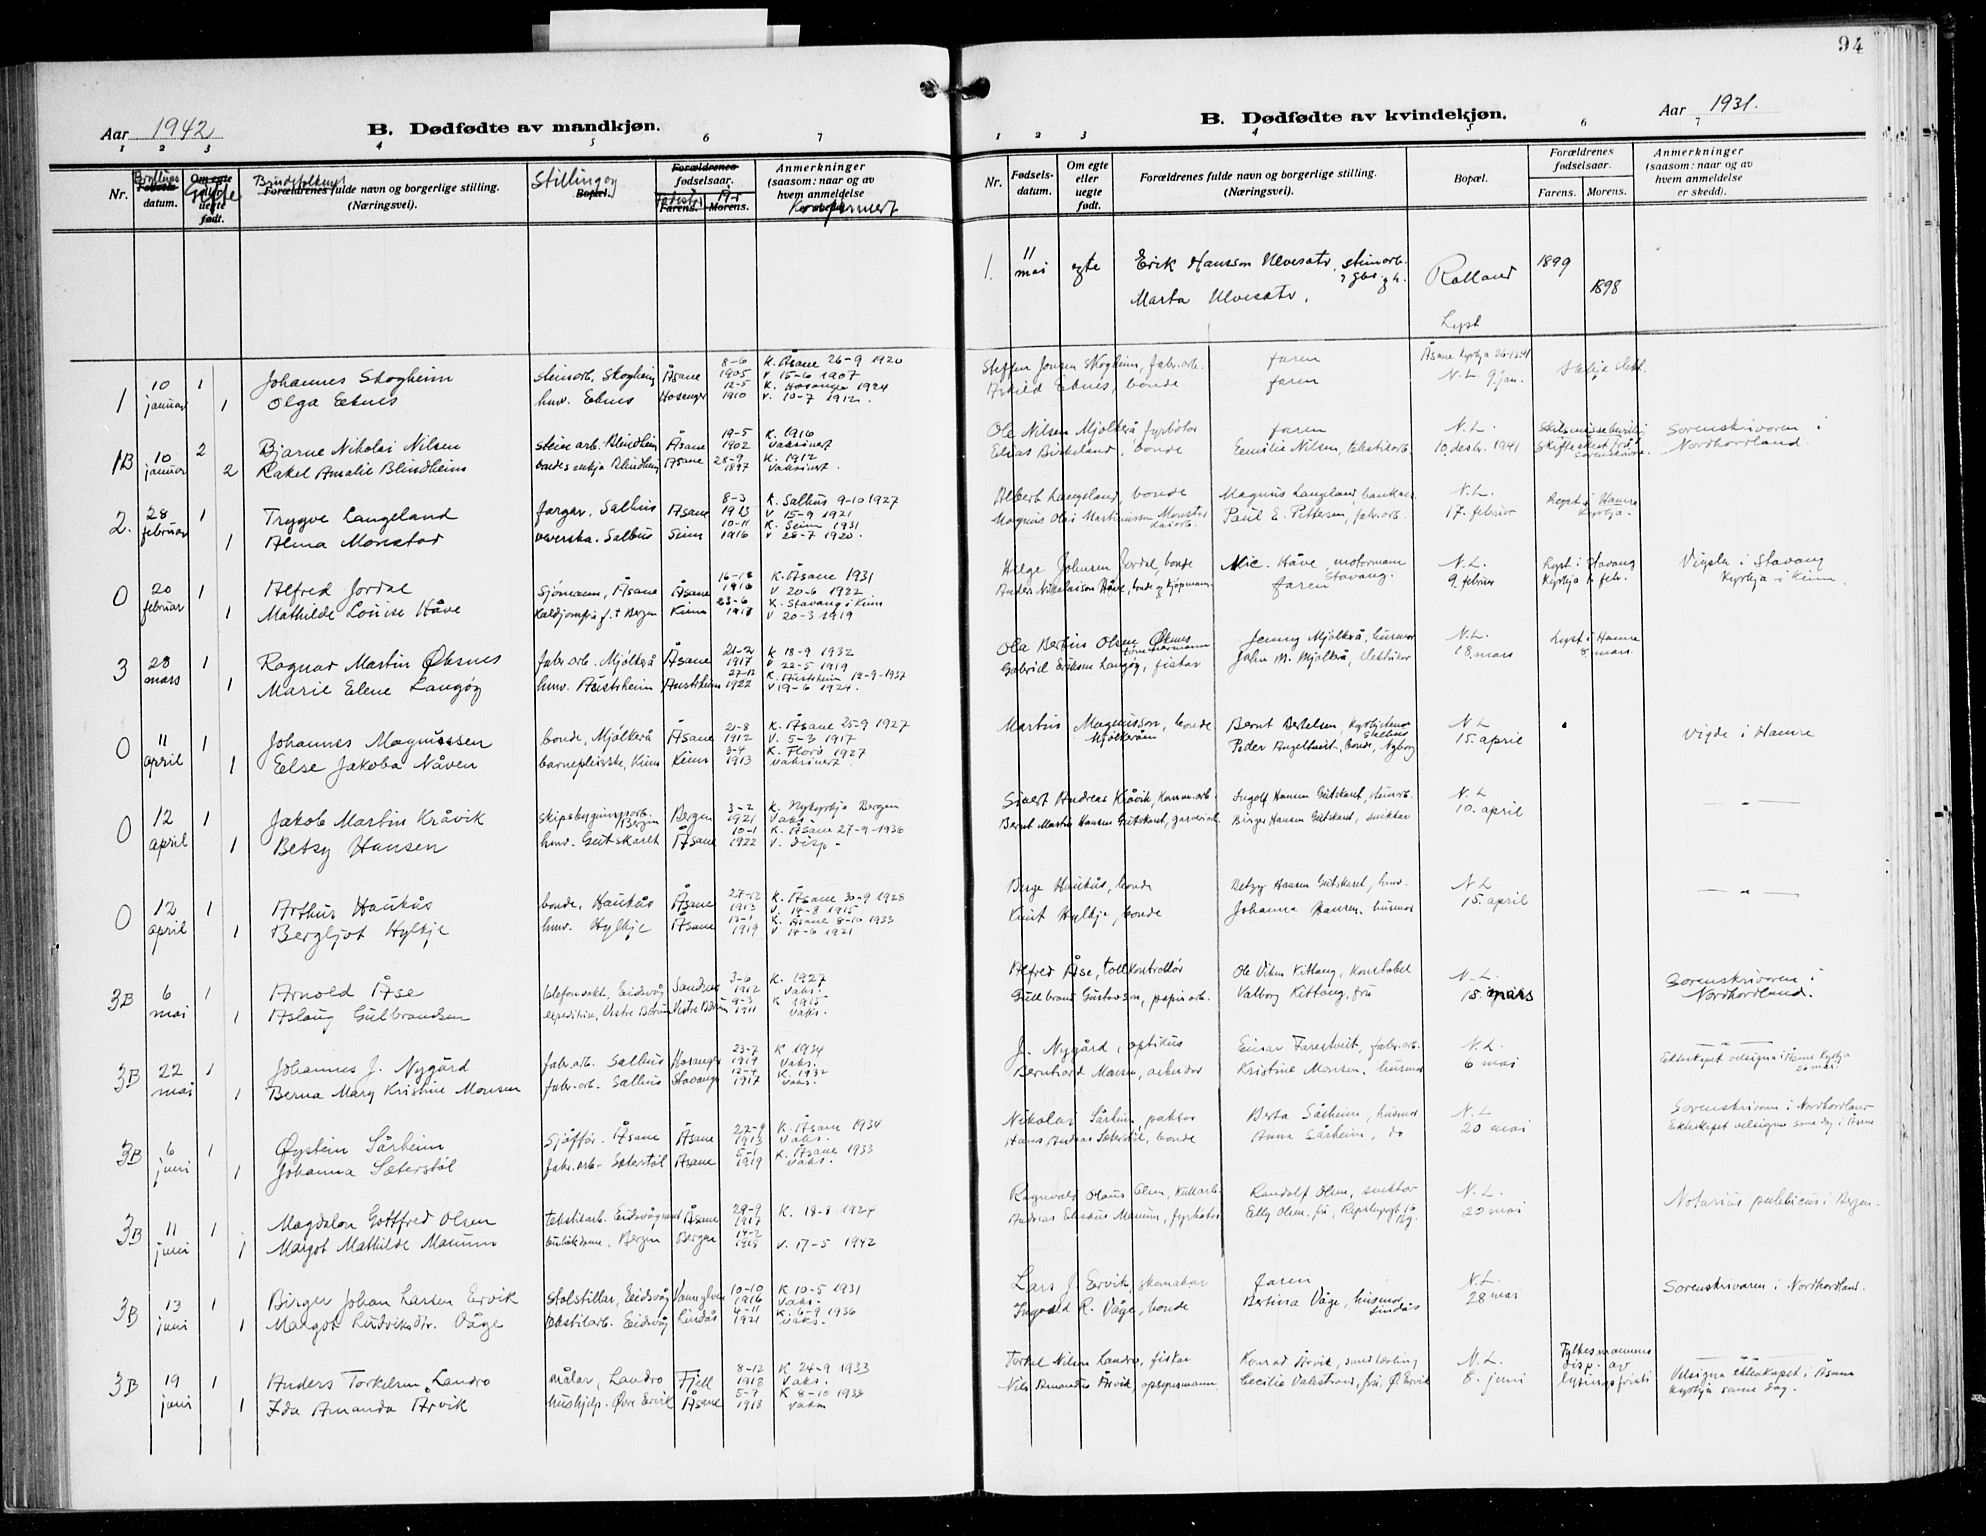 94
Aar 1942
B. Dødfødte av mandkjøn.
1 2 3 4 5 6 7
Nr.
Fødsels-
datum.
Om egte
eller
uegte
født.
Gifte
Forældrenes fulde navn og borgerlige stilling.
(Næringsvei).
Stilling og
Bopæl.
Forældrenes
fødselsaar.
Farens. Morens.
Anmerkninger
(saasom: naar og av
hvem anmeldelse
Konfirmert
1 10 januar 1
Johannes Skogheim steinarb. Skogheim Åsane 8-6 1905 K. Åsane 26-9 1920 V 15-6 1907
1 Olga Eknes hmv. Eknes Hosanger 12-5 1910 K. Hosanger 1924 V. 10-7 1912.
1B 10 januar 2
Bjarne Nikolai Nilsen steinarb. Blindheim Åsane 19-5 1902 K. 1916 vaksinert
2 Rakel Amalie Blindheim Blindheim Åsane 28-9 1897 K. 1912 Vaksinert.
2. 28 februar 1
Trygve Langeland fargar, Salhus Åsane 8-3 1913 K. Salhus 9-10 1927 V 15-9 1921
1 Alma Monstad veverska. Salhus Seim 10-11 1916 K. Seim 1931 V 28-7 1920.
0 20 februar 1
Alfred Jordal Sjømann, Åsane Åsane 1916 K. Åsane 1931 V 20-6 1922
1 Mathilde Louise Håve f.t. Bergen Kinn 23-6 K. Stavang i Kinn V 20-3 1919
3 28 mars 1
Ragnar Martin Øknes fabr.arb. Mjølkerå Åsane 21-2 1917 K 18-9 1932 V 22-5 1919
1 Marie Elene Langøy hmv. Austrheim Austrheim 27-12 1922 K. Austrheim 12-9-1937 V 19-6 1924.
0 11 april 1
Johannes Magnussen bonde, Mjølkerå Åsane 21-8 1912 K. Åsane 25-9 1927 V. 5-3 1917
1 Else Jakoba Nåven barnepleierske, Kinn Kinn 3-4 1913 K. Florø 1927 vaksinert.
0 12 april 1
Jakob Martin Kråvik skipsbygningsarb. Bergen Bergen 3-2 1921 K. Nykyrkja Bergen Vaks.
1 Betsy Hansen hmv. Geitskaret Åsane 10-1 1922 K. Åsane 27-9-1936 V. Disp.
0 12 april 1
Arthur Haukås bonde, Haukås Åsane 27-12 1913 K. Åsane 30-9 1928 V. 14-8 1915
1 Bergljot Hylkje hmv. Hylkje Åsane 13-1 1919 K. Åsane 8-10 1933 V 14-6 1921
3B 6 mai 1
Arnold Åse telefonvakt. Eidsvåg Sandnes 3-6 1912 K. 1927 Vaks.
1 Aslaug Gulbrandsen Vestre Bærum Vestre Bærum 9-3 1911 K Vaks.
3B 22 mai 1
Johannes J. Nygård fabr.arb. Salhus Hosanger 23-7 1919 K 1934 Vaks.
1 Berna Mary Kristine Monsen fabr.arb. Salhus Stavanger 12-4 1917 K. 1932 Vaks.
3B 6 juni 1
Øystein Sårheim Sjåfør. Åsane Åsane 22-9 1913 K. Åsane 1934 Vaks.
1 Johanna Sæterstøl fabr.arb. Sæterstøl Åsane 5-1 1919 K. Åsane 1933 Vaks.
3B 11 juni 1
Magdalon Gottfred Olsen tekstilarb. Eidsvågneset Åsane 29-9 K. 18-8-1924
1 Margot Mathilde Manum Bergen Bergen 14-2 V. 17-5 1942
3B 13 juni 1
Birger Johan Larsen Ervik Stolstillar, Eidsvåg Vannylven 10-10 1916 K 10-5 1931 Vaks.
1 Margot Ludviksdtr. Våge tekstilarb. Eidsvåg Lindås 4-11 1921 K. 6-9 1936 Vaks.
3B 19 juni 1
Anders Torkelsen Landro målar, Landro Fjell 8-12 1918 K 24-9 1933 Vaks.
1 Ida Amanda Årvik hushjelp. Øvre Ervik Åsane 5-7 1918 K 8-10 1933 Vaks
B. Dødfødte av kvindekjøn.
Aar 1931.
1 2 3 4 5 6 7
Nr.
Fødsels-
datum.
Om egte
eller
uegte
født.
Forældrenes fulde navn og borgerlige stilling.
(Næringsvei).
Bopæl.
Forældrenes
fødselsaar.
Farens. Morens.
Anmerkninger
(saasom: naar og av
hvem anmeldelse
er skedd).
1. 11 mai egte Erik Hansson Ulvesætr, steinarb.
Marta Ulvesætr. Rolland 1899 1898
Lyst
Steffen Jonsen Skogheim, fabr.arb. faren Åsane kyrkja
Arkild Eknes, bonde faren N.L. 9 jan.
Ole Nilsen Mjølkerå fyrbøter faren N.L.
Elias Birkeland, bonde Emilie Nilsen, tekstilarb. 10. desbr. 1941
Sorenskrivaren i
Nordhordland.
Albert Langeland, bonde Magnus Langeland, N.L. Lyst i Hamre
Magnus Olai Martinussen Monstad Paul E. Pettersen, fabr.arb. 17. februar kyrkja.
Helge Johnsen Jordal, bonde Nic. Håve, motormann Stavang. N.L. Lyst i Stavang
Anders Nikolaisson Håve, bonde og kjøpmann faren 9. februar Kyrkja 1 febr.
Vigsla i Stavang
Kyrkja i Kinn.
Ola Bertius Olsen Øknes tømmermann Jenny Mjølkerå, husmor N.L. Lyst i Hamre
Gabriel Eriksen Langøy, fiskar John M. Mjølkerå, elektriker 18. mars 8 mars.
Martin Magnusson, bonde Mjølkeråen Bernt Bertelsen, kyrkjetenar Salhus N.L.
Peder Angeltveit, bonde, Nyborg 15. april
Vigde i Hamre
Sivert Andreas Kråvik, Ingolf Hansen Geitskaret, steinarb. N.L.
Bernt Martin Hansen Geitskaret, Birger Hansen Geitskaret, snikkar 10. april
— " —
Berge Haukås, bonde Betzy Hansen Geitskaret, hmv. N.L.
Knut Hylkje, bonde Johanna Hansen, husmor 15. april
— " —
Alfred Åse, tollkontrollør Ole Viken Kittang, konstabel N.L.
Gullbrand Gustavson, papirarb. Valborg Kittang, fru 15. mars
Sorenskrivaren i
Nordhordland.
J. Nygård, optikus Einar Farestveit, fabr.arb. N.L.
Bernhard Monsen, arbeider Kristine Monsen, husmor 6 mai
— " —
Ekteskapet velsigna i Åsane kyrkja
Nikolai Sårheim, Berta Sårheim, husmor N.L.
Hans Andreas Sæterstøl, bonde Anna Sårheim, do 20 mai
Sorenskrivaren i Nordhordland
Ekteskapet velsigna same dag i Åsane
Ragnvald Olaus Olsen, Randolf Olsen, snikkar N.L.
Andreas Elisæus Manum, fyrbøter Elly Olsen, fru, 20 mai
Notarius publicus i Bergen.
Lars J. Ervik, skomakar faren N.L.
Ingvald R. Våge, bonde Bertina Våge, husmor Lindås 28 mai
Sorenskrivaren i Nordhordland.
Torkel Nilsen Landro, fiskar Konrad Årvik, N.L. Fylkesmannens
Nils Amandus Årvik, oppsynsmann Cecilie Vallestrand, fru, Ø. Ervik 8. juni disp. av
lysingsfrist
Velsigna ekteskapet i Åsane
kyrkja same dag.